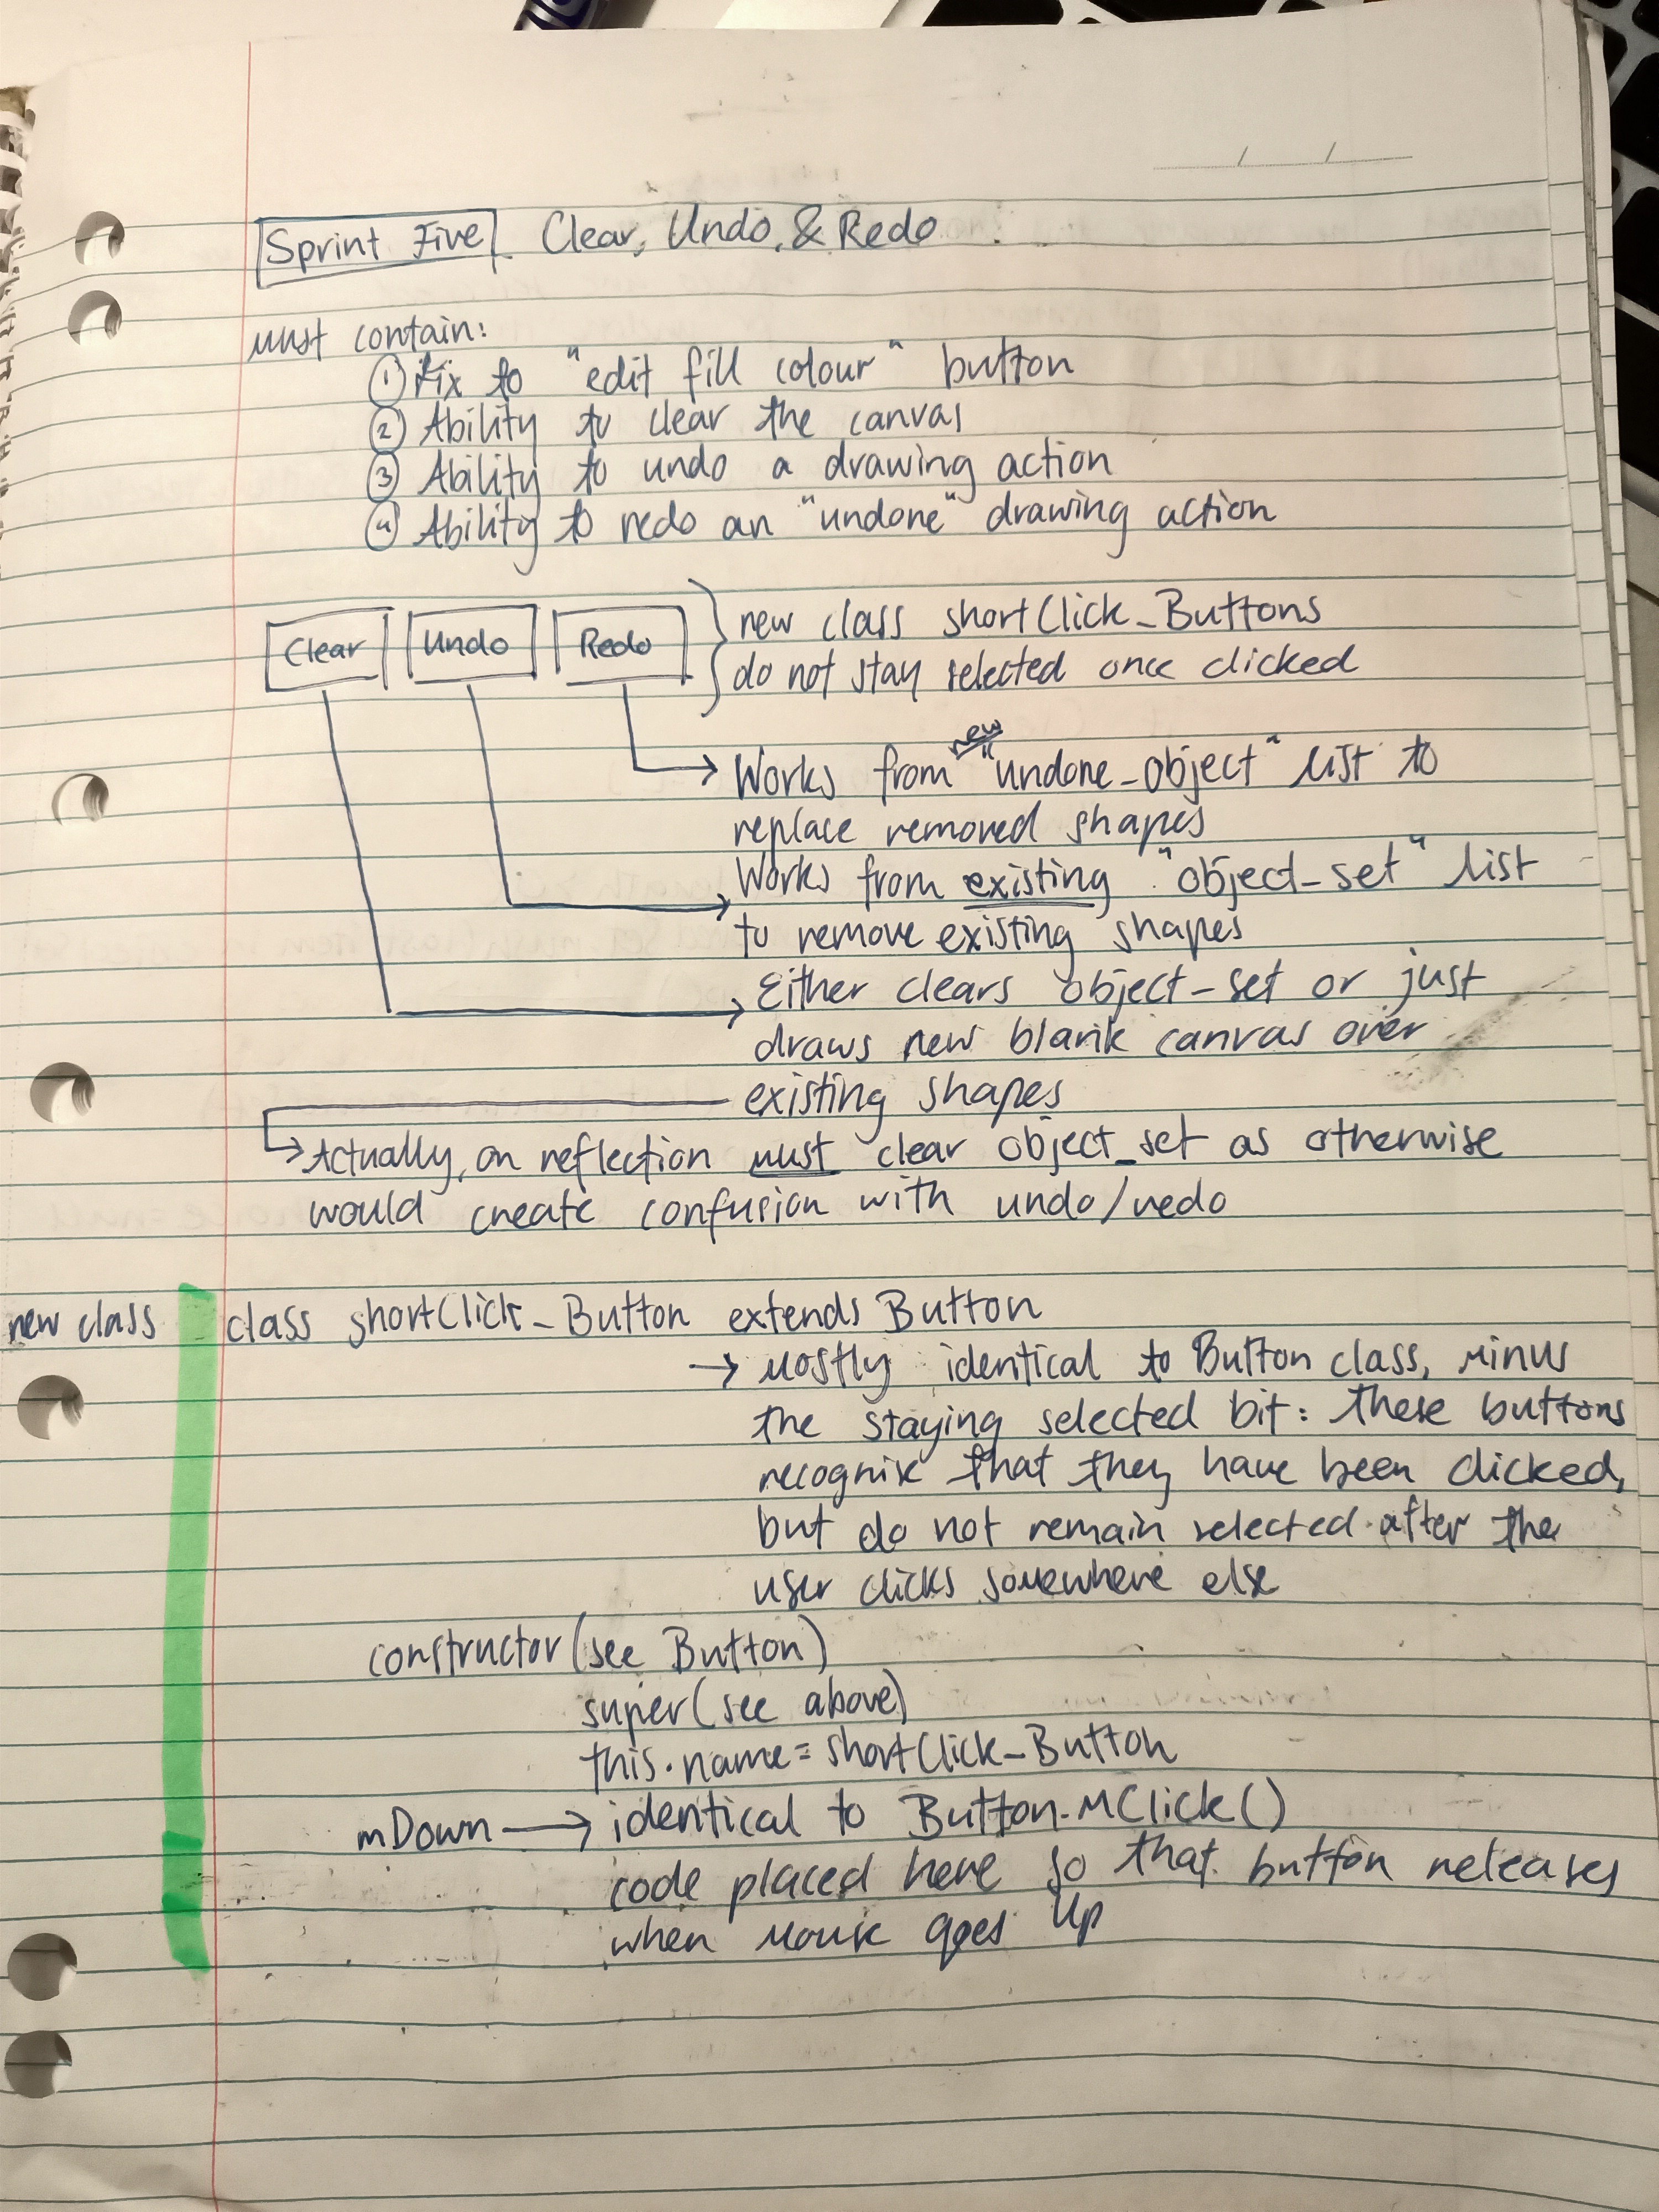 Sprint Five Clear, Undo, & Redo
must contain:
① Fix to "edit fill colour" button
② Ability to clear the canvas
③ Ability to undo a drawing action
④ Ability to redo an "undone" drawing action
Clear Undo Redo
new class shortClick_Buttons
do not stay selected once clicked
new
Works from "undone_object" list to
replace removed shapes
Works from existing "object_set" list
to remove existing shapes
Either clears object_set or just
draws new blank canvas over
existing shapes
Actually, on reflection must clear object_set as otherwise
would create confusion with undo/redo
new class class shortClick_Button extends Button
→ mostly identical to Button class, minus
the staying selected bit: these buttons
recognise that they have been clicked,
but do not remain selected after the
user clicks somewhere else
constructor(see Button)
super(see above)
this.name = shortClick_Button
mDown → identical to Button.MClick()
code placed here so that button releases
when mouse goes up